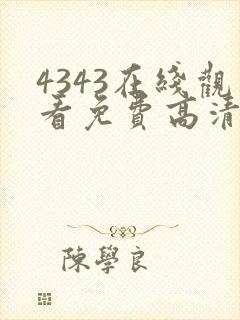 4343在綫觀
看免費高清
陳學良